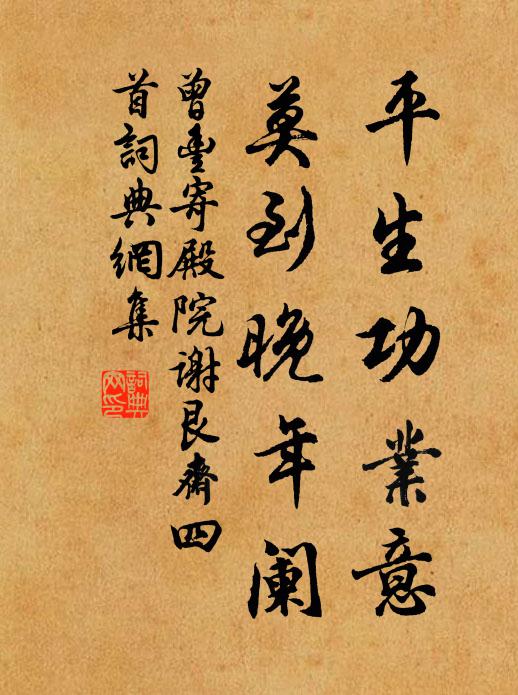 平生功業意
莫到晚年阑
曾豐寄殿院謝艮齋四
首詞典網集
詞典網印